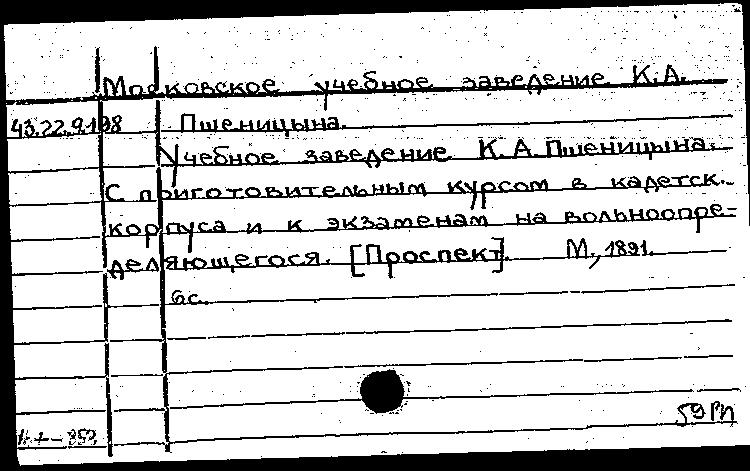 Московское учебное заведение К.А.
43.22.9.198 Пшеницына.
Учебное заведение К.А.Пшеницына.
С приготовительным курсом в кадетск.
корпуса и к экзаменам на вольноопре-
деляющегося. [Проспект]. М., 1891.
6с.
59РП